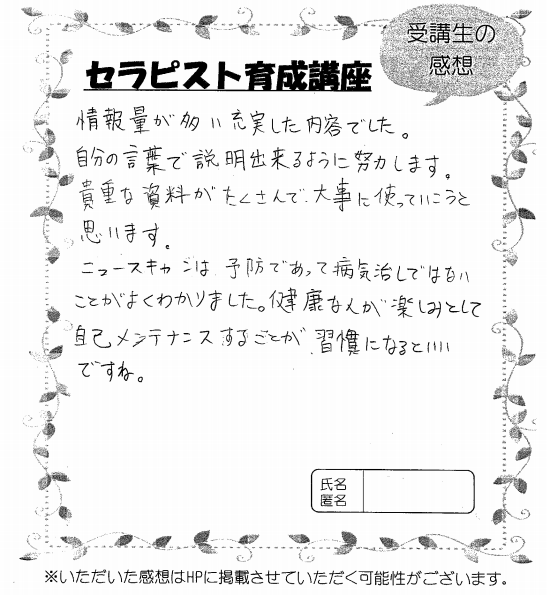 受講生の
感想
セラピスト育成講座
情報量が多い充実した内容でした。
自分の言葉で説明出来るように努力します。
貴重な資料がたくさんで、大事に使っていこうと
思います。
ニュースキャンは、予防であって病気治しではない
ことがよくわかりました。健康な人が楽しみとして
自己メンテナンスすることが、習慣になるといい
ですね。
氏名
匿名
※いただいた感想はHPに掲載させていただく可能性がございます。